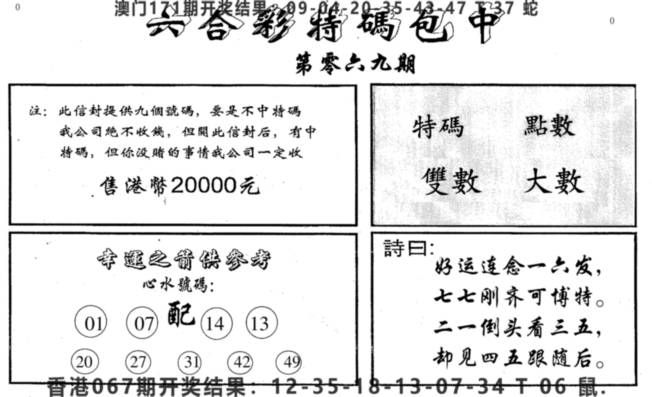 澳门171期开奖结果：09-04-20-35-43-47 T 37 蛇
0
0
六合彩特碼包中
第零六九期
注：此信封提供九個號碼，要是不中特碼
我公司絕不收錢，但開此信封后，有中
特碼，但你没賭的事情我公司一定收
售港幣20000元
特碼 點數
雙數 大數
幸運之箭供參考
心水號碼：
01 07 配 14 13
20 27 31 42 49
詩曰：
好运连念一六发，
七七刚齐可博特。
二一倒头看三五，
却见四五跟随后。
香港067期开奖结果：12-35-18-13-07-34 T 06 鼠.